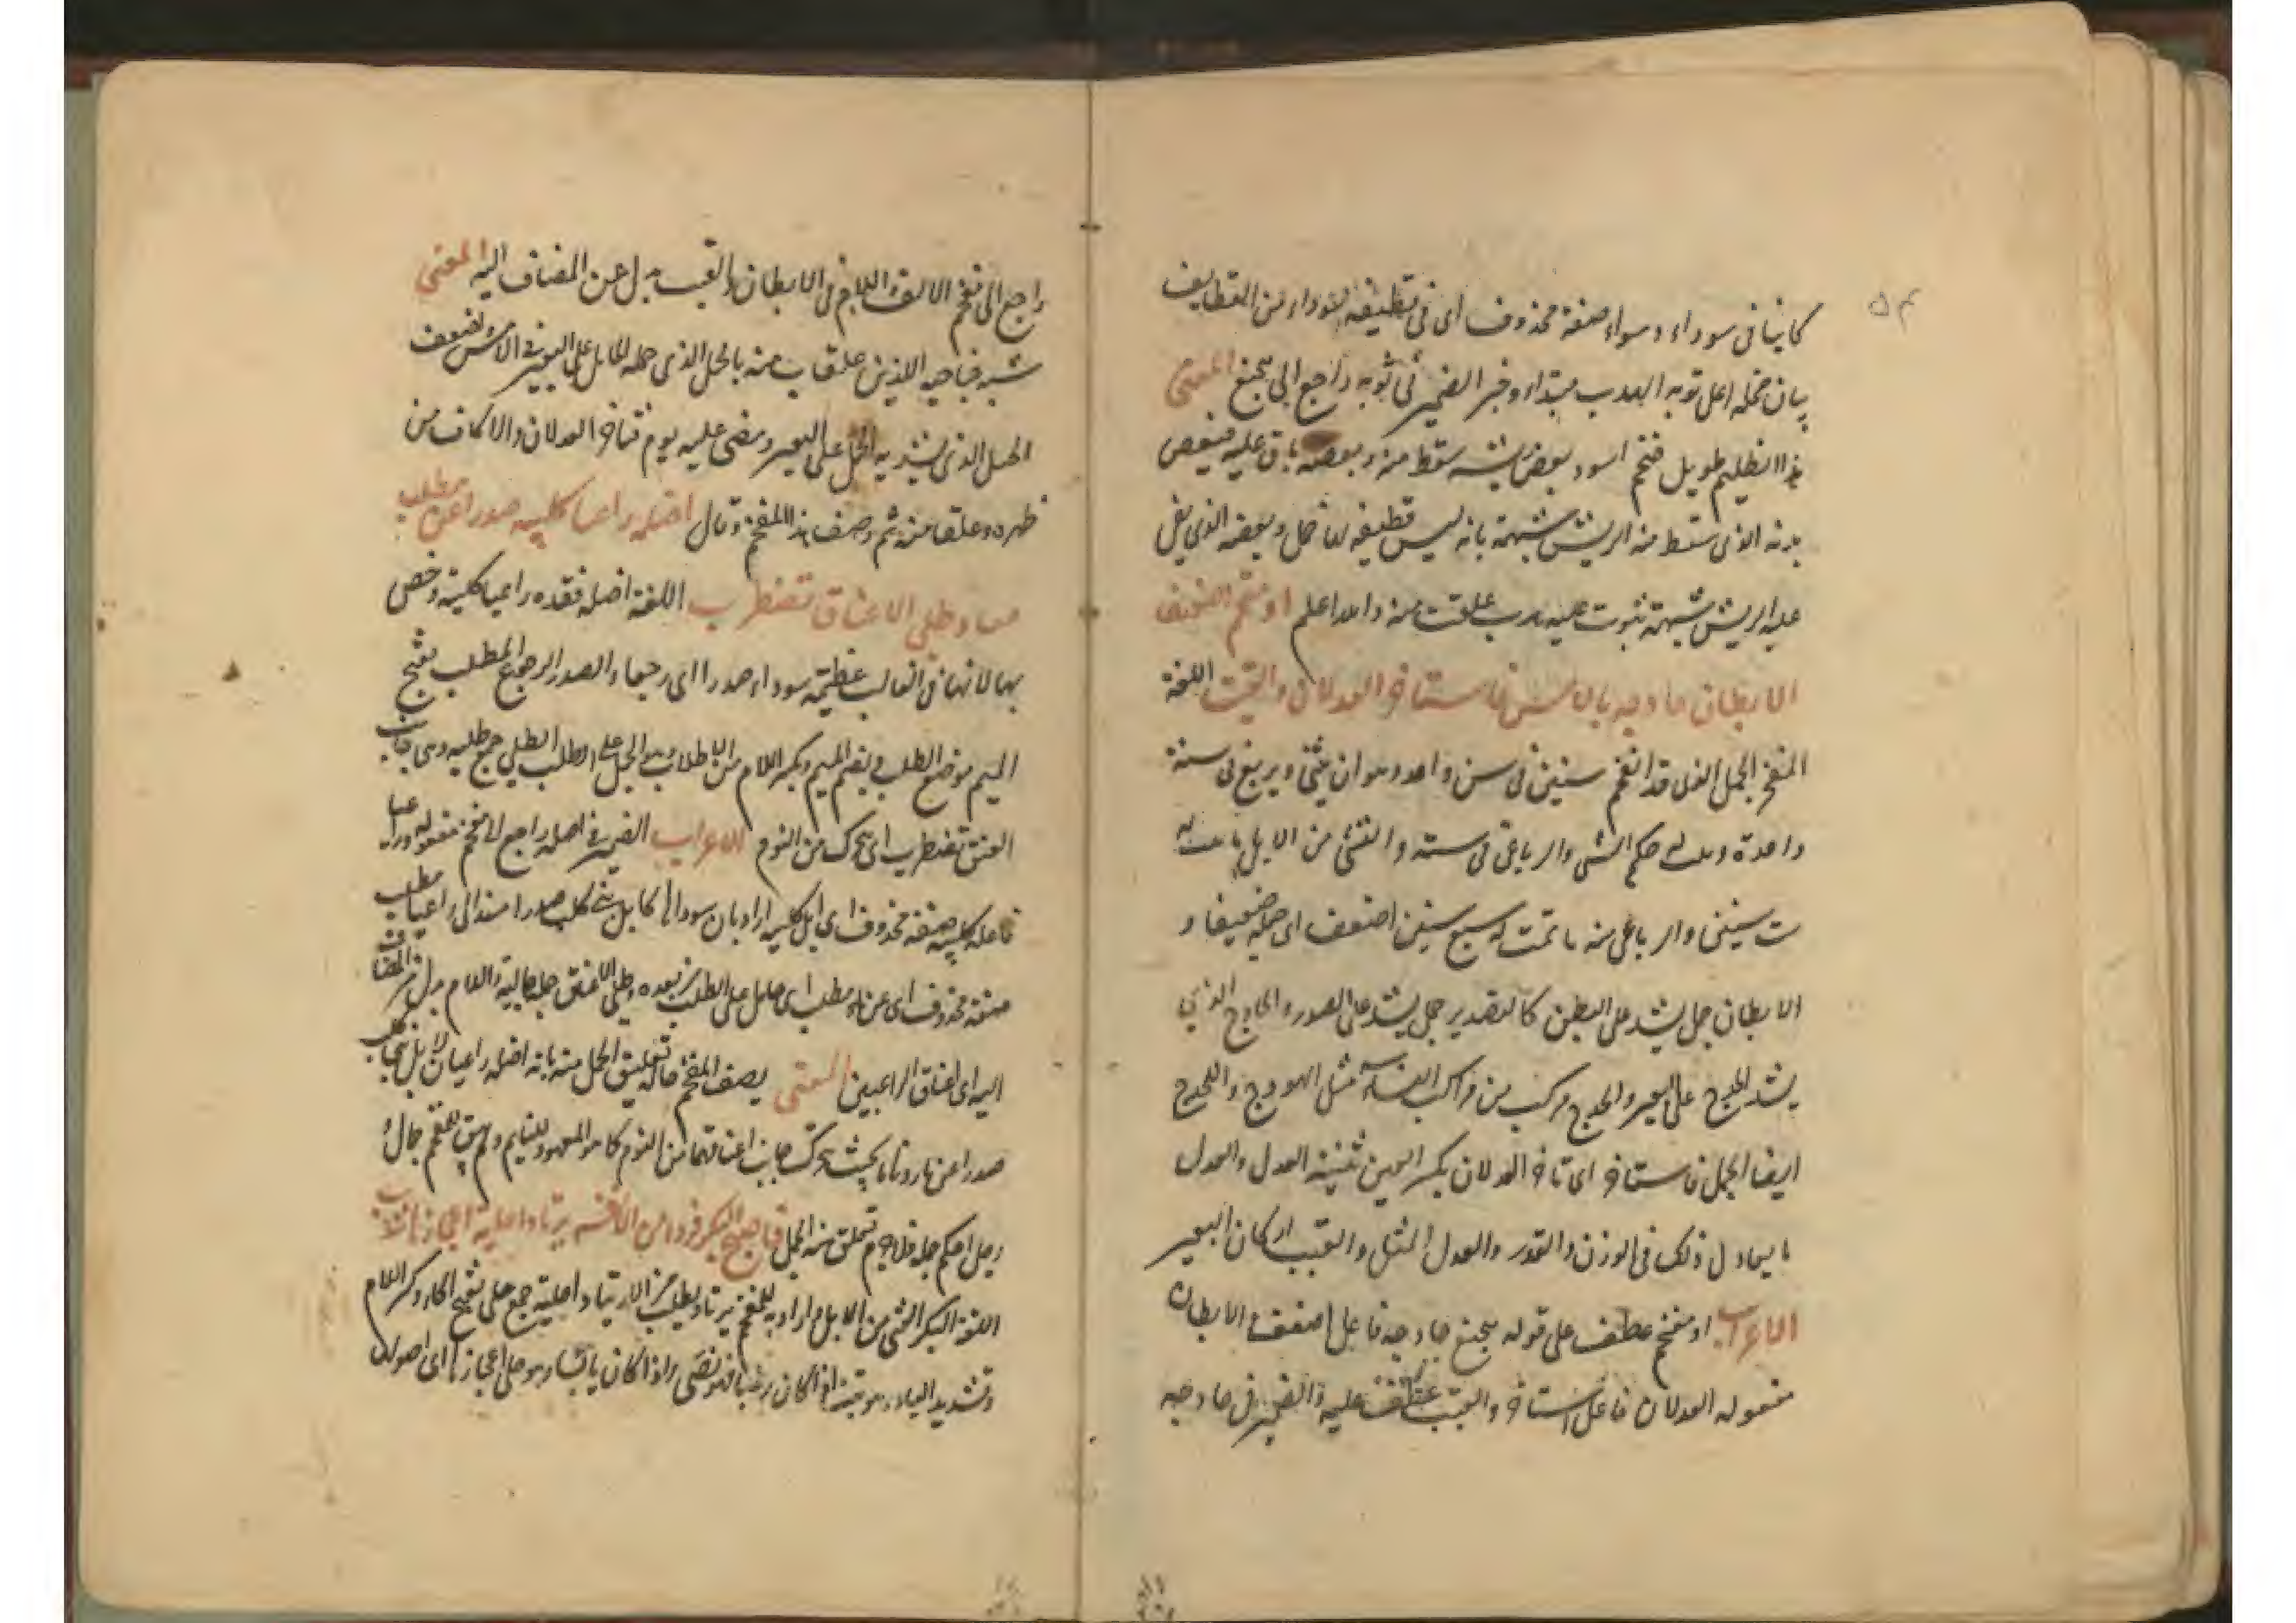 ۵۴
كاينا فى سوداء وسوداء صفة محذوف اى فى قطيفة سوداء من القطايف
بيان خمله اعلى ثوبه الهدب مبتداء وخبر الضمير فى ثوبه راجع الى هجنع المعنى
هذا الظليم طويل ضخم اسود بعض ريشه سقط منه وبعضه باق عليه فبعض
بدنه الذى سقط منه الريش شبهته بانه ليس قطيفة لها خمل وبعضه الذى بقى
عليه الريش شبهته بثوب عليه هدب علقت منه والله اعلم او مقحم اضعف
الابطان حادجه بالامس فاستأخر العدلان والقتب اللغة
المقحم الجمل الذى قد اقحم سنين فى سن واحد وهو ان يثنى ويربع فى سنة
واحدة الثنى والرباعى فى سنة والثنى من الابل ما تمت له
ست سنين والرباعى منه ما تمت له سبع سنين اضعف اى جعله ضعيفا و
الابطان حبل يشد على البطن كالتصدير حبل يشد على الصدر والحادج الذى
يشد الحدج على البعير والحدج مركب من مراكب النساء مثل الهودج والمحدج
ايضا الجمل فاستأخر اى تأخر العدلان بكسر العين تثنية العدل والعدل
ما يعادل ذلك فى الوزن والقدر والعدل المثل والقتب اكاف البعير
الاعراب او مقحم عطف على قوله هجنع حادجه فاعل اضعف الابطان
مفعوله العدلان فاعل استأخر والقتب عطف عليه والضمير فى حادجه
راجع الى مقحم الالف واللام فى الابطان والقتب بدل عن المضاف اليه المعنى
شبه جناحيه اللذين علقا منه بالحمل الذى حمله الحامل على البعير فى الامس وضعف
الحبل الذى يشد به الحمل على البعير ومضى عليه يوم فتأخر العدلان والاكاف من
ظهره وعلقا منه ثم وصف هذا المقحم وقال اضله راعيا كلبية صدرا عن مطلب
وطلى الاعناق تضطرب اللغة اضله فقده راعيا كلبية وخص
بها لانها فى الغالب عظيمة سوداء صدرا اى رجعا والصدر الرجوع المطلب بفتح
الميم موضع الطلب وبضم الميم وكسر اللام من الاطلاب وهو الحمل على الطلب الطلى جمع طلية وهى جانب
العنق تضطرب اى تحرك من النوم الاعراب الضمير فى اضله راجع الى مقحم مفعوله وراعيا
فاعله كلبية صفة محذوف اى ابل كلبية اراد بان سودالها كابل بنى كلب صدرا مسند الى راعيا مطلب
صفة محذوف اى عن ماء مطلب اى حامل على الطلب من بعده وطلى الاعناق جملة حالية واللام بدل من المضاف
اليه اى اعناق الراعيين المعنى يصف المقحم حالة تعليق الحمل منه بانه اضله راعيان لابل بنى كلب
صدرا عن ماء وناما بحيث تحرك جانب اعناقهما من النوم كما هو المعهود للنايم ولم يبق للمقحم حال و
رجل احكم حمله فلا جرم تعلق منه الحمل فاصبح البكر فردا من الافه يرتاد احلية اعجازها شذب
اللغة البكر الفتى من الابل واراد به المقحم يرتاد يطلب من الارتياد احلية جمع حلى بفتح الحاء وكسر اللام
وتشديد الياء وهو نبت اذا كان رطبا فهو نصى واذا كان يابسا فهو حلى اعجازها اى اصولها